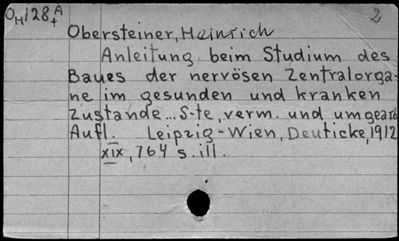 OM128A+ 2
Obersteiner, Heinrich
Anleitung beim Studium des
Baues der nervösen Zentralorga-
ne im gesunden und kranken
Zustande... 5-te, verm. und umgearb
Aufl. Leipzig-Wien, Deuticke, 1912
XIX, 764 s. ill.